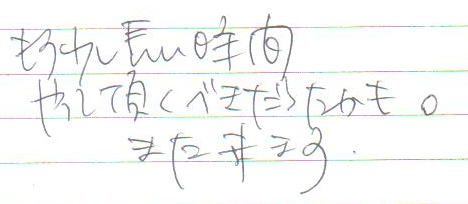 もう少し長い時間
やって頂くべきだったかも。
また来ます.